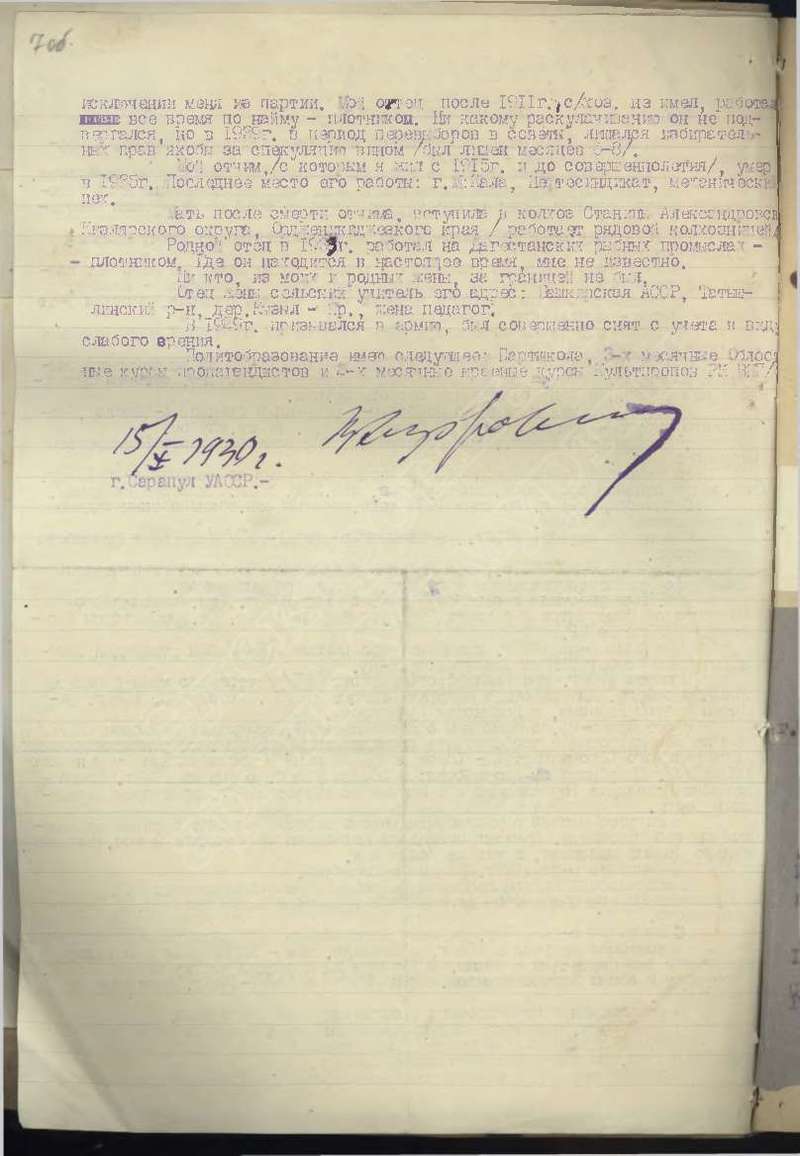 7 об.
исключении меня из партии. Мой отец после 1911г., с/хоз. не имел, работал
все время по найму - плотником. Ни какому раскулачиванию он не под-
вергался, но в 1929г. в период перевыборов в советы, лишался избиратель-
ных прав якобы за спекуляцию вином /был лишен месяцев 6-8/.
Мой отчим,/с которым я жил с 1915г. и до совершеннолетия/, умер
в 1935г. Последнее место его работы: г.М.Кала, Нефтесиндикат, механический
цех.
Мать после смерти отчима, вступила в колхоз Станицы Александровск
Кизлярского округа, Орджоникидзевского края / работает рядовой колхозницей/
Родной отец в 193 г. работал на Дагестанских рыбных промыслах -
- плотником. Где он находится в настоящее время, мне не известно.
Ни кто, из моих и родных жены, за границей не был.
Отец жены сельский учитель его адрес: Башкирская АССР, Татыш-
линский р-н, дер.Кызыл - Яр., жена педагог.
В 1929г. призывался в армию, был совершенно снят с учета в виду
слабого зрения.
Политобразование имею следующее: Партшкола, 3-х месячные Област
ные курсы пропагандистов и 2-х месячные краевые курсы Культпропов РК ВКП/
15/X 1939г.
г.Сарапул УАССР.-